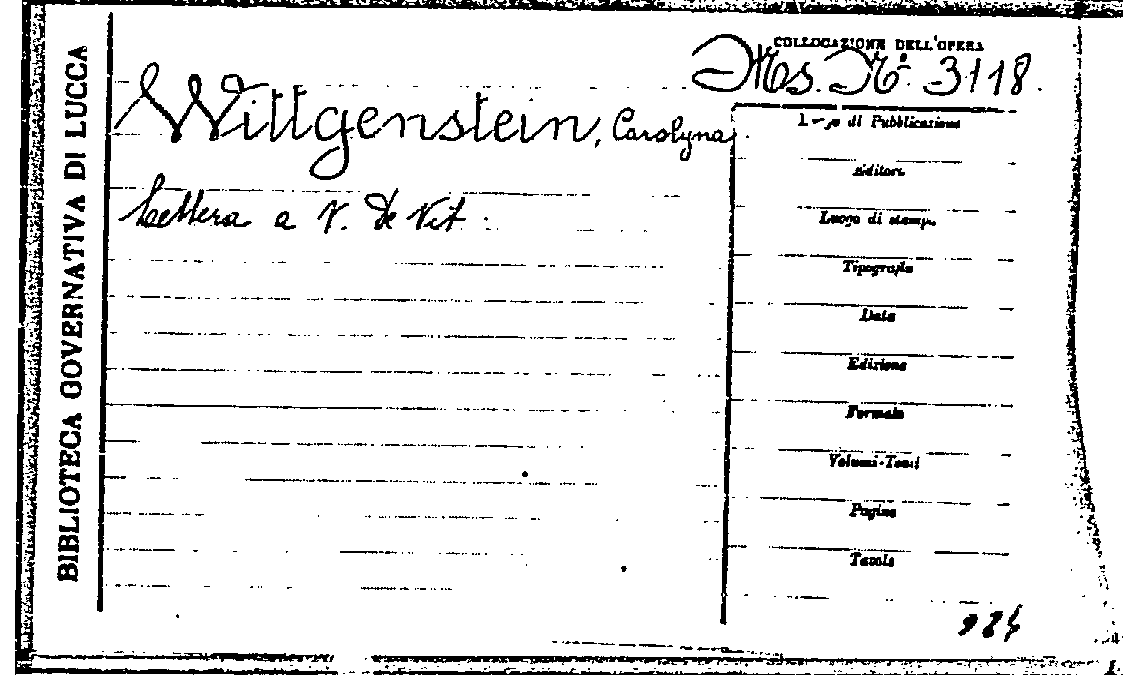 BIBLIOTECA GOVERNATIVA DI LUCCA
COLLOCAZIONE DELL'OPERA
Ms. N.º 3118.
Wittgenstein, Carolyna.
Lettera a V. De Vit.
di Pubblicazione
Editore
Luogo di stampa
Tipografo
Data
Edizione
Formato
Volumi-Tomi
Pagine
Tavole